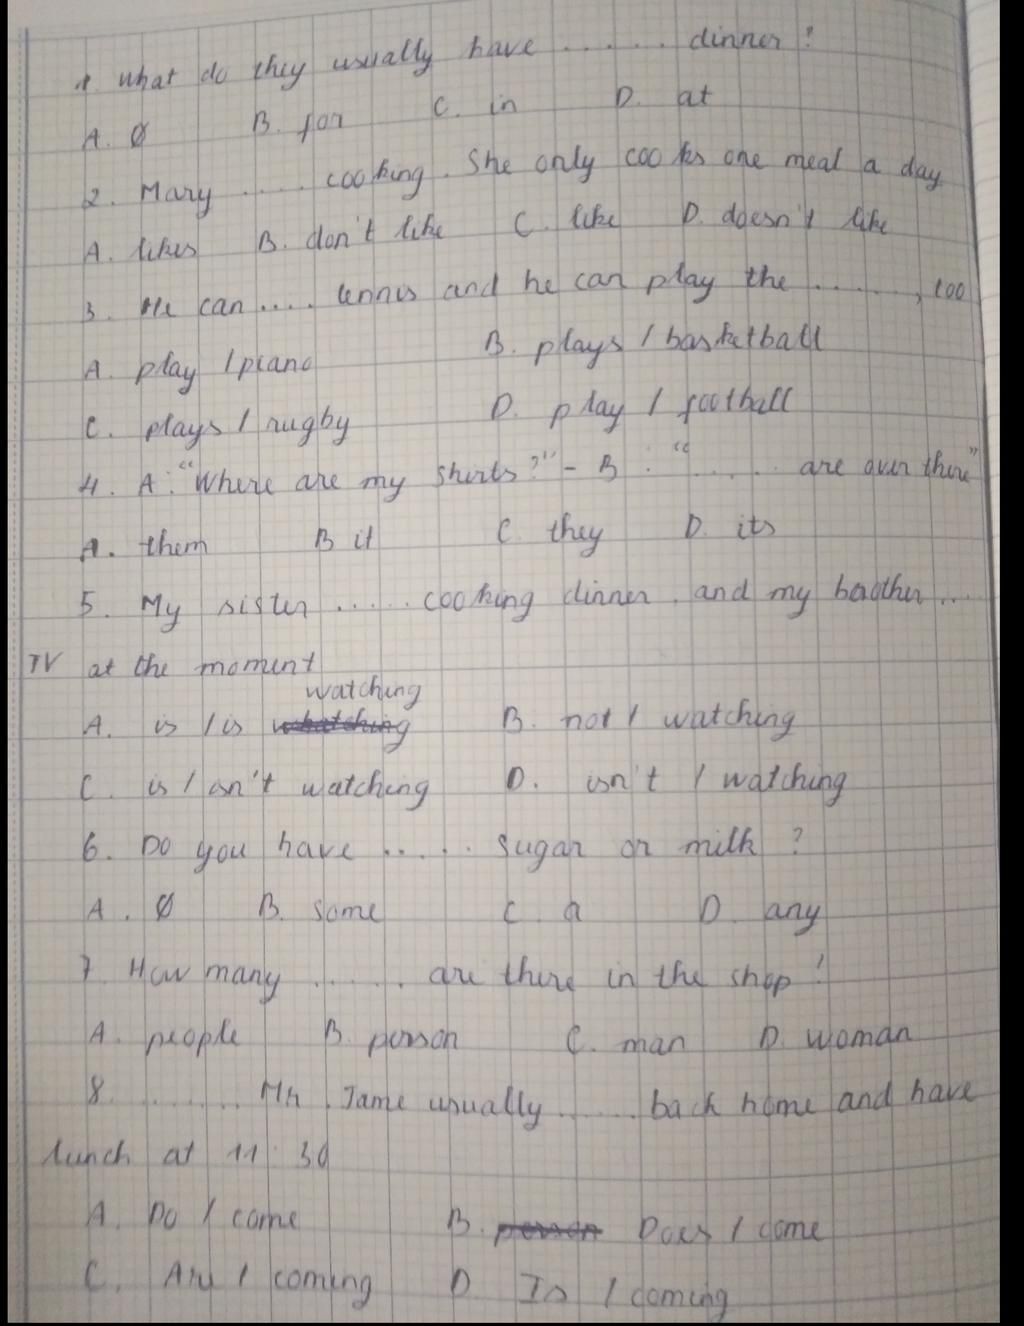 1. What do they usually have ...... dinner?
A. Ø B. for C. in D. at
2. Mary ..... cooking. She only cooks one meal a day
A. likes B. don't like C. like D. doesn't like
3. He can .... tennis and he can play the ........, too
A. play / piano B. plays / basketball
C. plays / rugby D. play / football
4. A: "Where are my shirts?" - B: "...... are over there"
A. them B it C. they D. its
5. My sister ..... cooking dinner, and my brother ...
TV at the moment
watching
A. is / is B. not / watching
C. is / isn't watching D. isn't / watching
6. Do you have ..... sugar or milk?
A. Ø B. some C. a D. any
7. How many ...... are there in the shop?
A. people B. person C. man D. woman
8. ........ Mr. Jame usually ...... back home and have
lunch at 11:30
A. Do / come B. Does / come
C. Are / coming D Is / coming